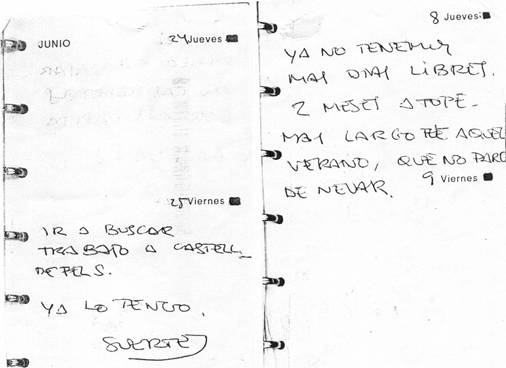 JUNIO
24 Jueves
25 Viernes
IR A BUSCAR
TRABAJO A CASTELL_
DEFELS.
YA LO TENGO.
SUERTE
8 Jueves
YA NO TENEMOS
MAS DIAS LIBRES.
2 MESES A TOPE-
MAS LARGO FUE AQUEL
VERANO, QUE NO PARO
DE NEVAR.
9 Viernes